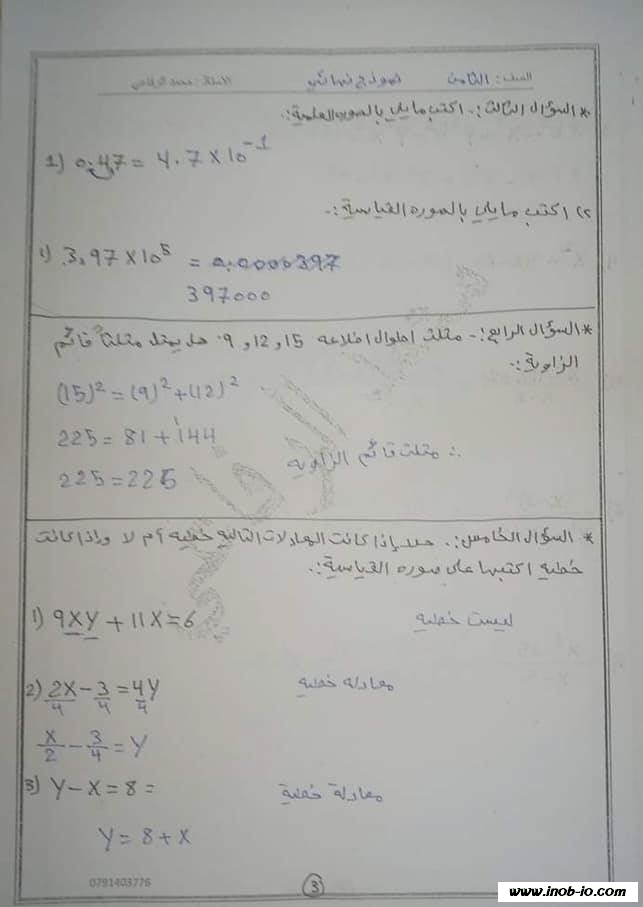 الصف: الثامن
نموذج نهائي
الأستاذ: محمد
* السؤال الثالث:. اكتب ما يلي بالصوره العلمية:.
1) 0.47 = 4.7 X 10^-1
2) اكتب ما يلي بالصوره القياسية:.
1) 3.97 X 10^5 = 0.0000397
397000
* السؤال الرابع:. مثلث اطوال اضلاعه 15 و 12 و 9. هل يمثل مثلثاً قائم
الزاوية:.
(15)^2 = (9)^2 + (12)^2
225 = 81 + 144
225 = 225
∴ مثلث قائم الزاويه
* السؤال الخامس:. حدد إذا كانت المعادلات التاليه خطيه أم لا وإذا كانت
خطيه اكتبها على صوره القياسية:.
1) 9XY + 11X = 6 ليست خطيه
2) 2X/4 - 3/4 = 4Y/4 معادله خطيه
X/2 - 3/4 = Y
3) Y - X = 8 = معادلة خطية
Y = 8 + X
0791403776
3
www.inob-io.com